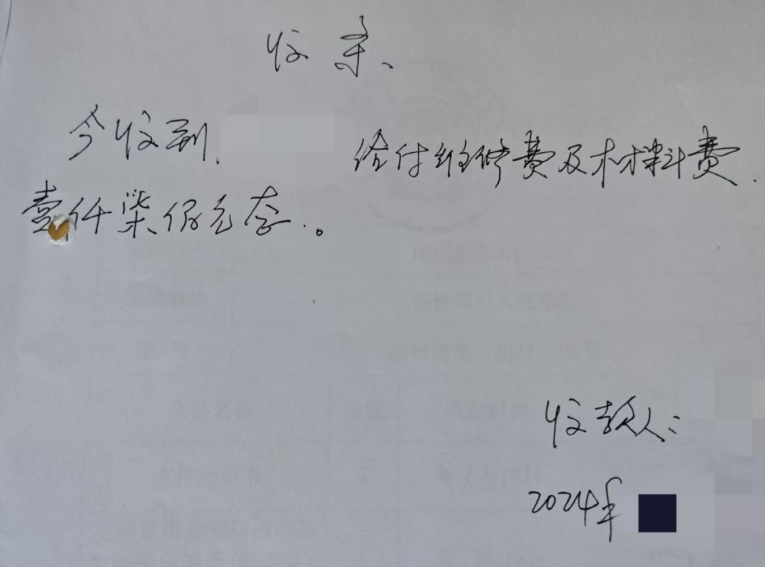 收条、
今收到、 给付维修费及材料费.
壹仟柒佰元整。
收款人:
2024年